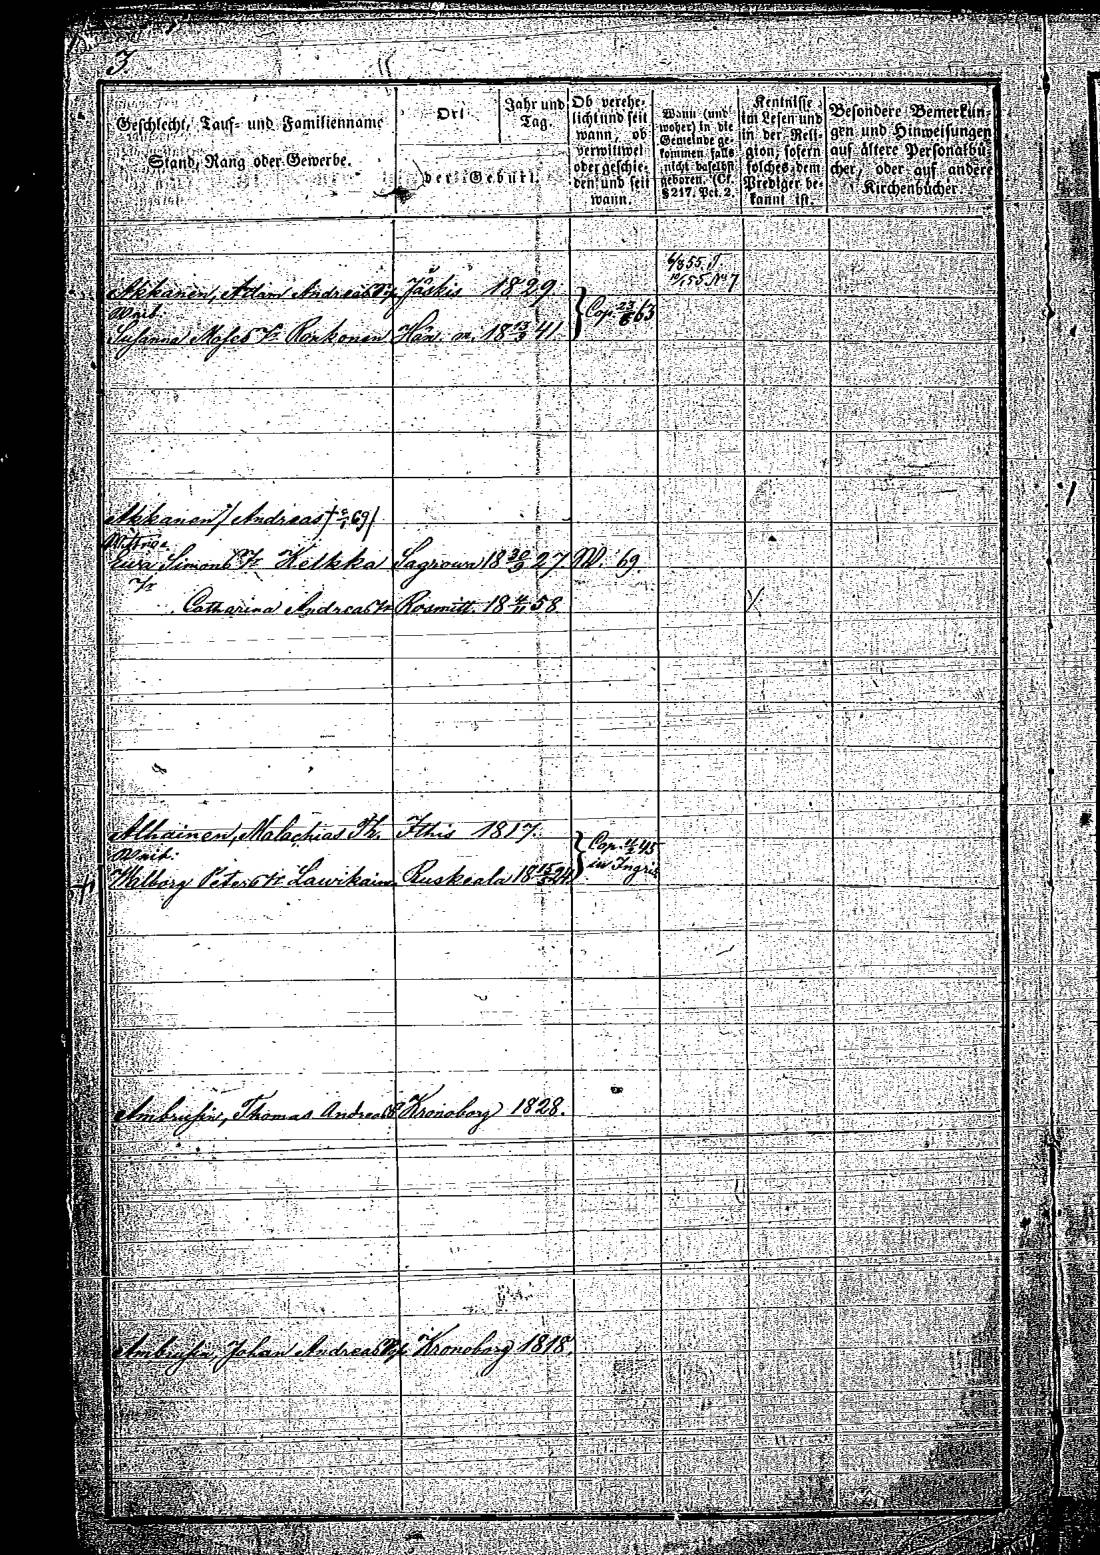 3.
Geschlecht, Tauf- und Familienname
Stand, Rang oder Gewerbe.
Ort
Jahr und Tag
der Geburt.
Ob verehe-
licht und seit
wann, ob
verwittwet
oder geschie-
den und seit
wann.
Wann (und
woher) in die
Gemeinde ge-
kommen falls
nicht daselbst
geboren. (Cf.
§ 217. Pct. 2.
Kentnisse
im Lesen und
in der Reli-
gion, sofern
solches dem
Prediger be-
kannt ist.
Besondere Bemerkun-
gen und Hinweisungen
auf ältere Personalbü-
cher, oder auf andere
Kirchenbücher
Akkanen, Adam Andreas Jäskis 1829.
Weib:
Susanna Moses Ronkonen 18 13/3 41.
Cop. 23/6 63
Akkanen / Andreas † 69/
Wittwe
Ewa Simons Helkka Sagrowa 18 20/3 27 W. 69.
Catharina Andreas 18 4/11 58
Alhainen, Malachias Th. 1817.
Weib:
Walborg Peters Lawikain Ruskeala 18 24
Cop. 45
in Ingris
Ambrusin, Thomas Andreas Kronoborg 1828.
Ambrusin, Johan Andreas Kronoborg 1818.